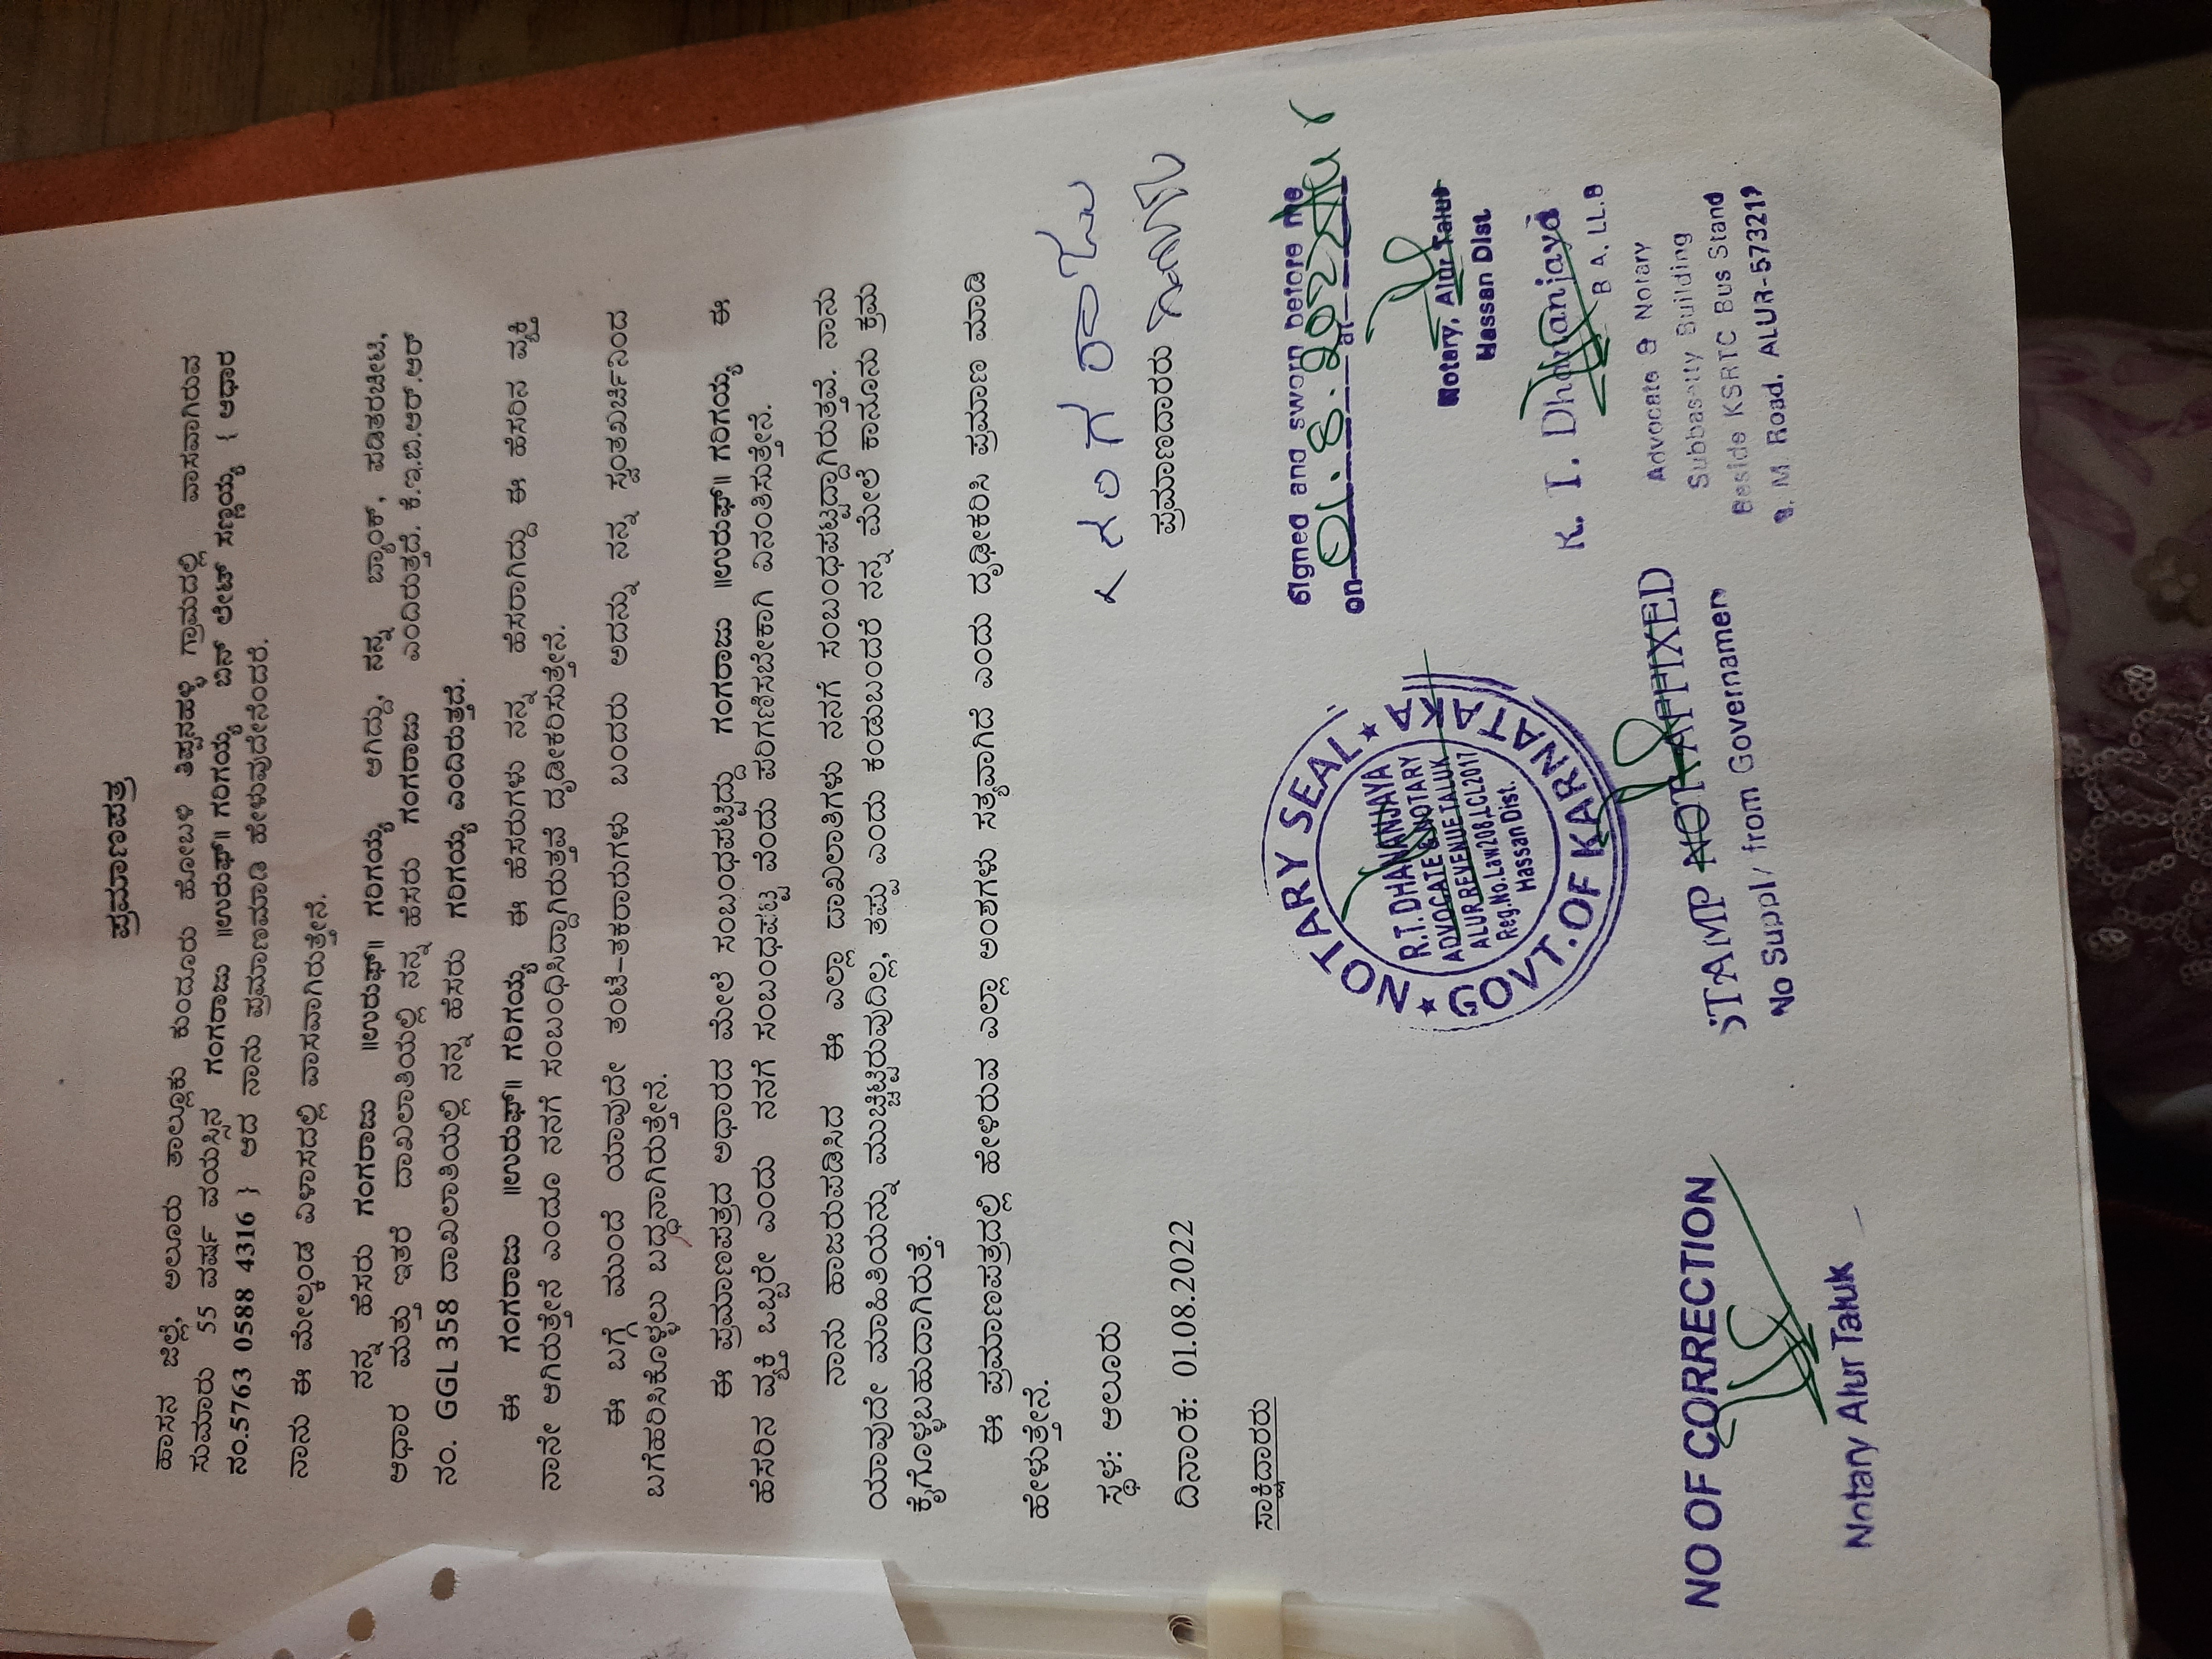 ಪ್ರಮಾಣಪತ್ರ
ಹಾಸನ ಜಿಲ್ಲೆ, ಆಲೂರು ತಾಲ್ಲೂಕು ಕುಂದೂರು ಹೋಬಳಿ ತಿಪ್ಪನಹಳ್ಳಿ ಗ್ರಾಮದಲ್ಲಿ ವಾಸವಾಗಿರುವ
ಸುಮಾರು 55 ವರ್ಷ ವಯಸ್ಸಿನ ಗಂಗರಾಜು ॥ಉರುಫ್॥ ಗಂಗಯ್ಯ ಬಿನ್ ಲೇಟ್ ಸಣ್ಣಯ್ಯ { ಆಧಾರ
ನಂ.5763 0588 4316 } ಆದ ನಾನು ಪ್ರಮಾಣಮಾಡಿ ಹೇಳುವುದೇನೆಂದರೆ.
ನಾನು ಈ ಮೇಲ್ಕಂಡ ವಿಳಾಸದಲ್ಲಿ ವಾಸವಾಗಿರುತ್ತೇನೆ.
ನನ್ನ ಹೆಸರು ಗಂಗರಾಜು ॥ಉರುಫ್॥ ಗಂಗಯ್ಯ ಆಗಿದ್ದು, ನನ್ನ ಬ್ಯಾಂಕ್, ಪಡಿತರಚೀಟಿ,
ಆಧಾರ ಮತ್ತು ಇತರೆ ದಾಖಲಾತಿಯಲ್ಲಿ ನನ್ನ ಹೆಸರು ಗಂಗರಾಜು ಎಂದಿರುತ್ತದೆ. ಕೆ.ಇ.ಬಿ.ಆರ್.ಆರ್
ನಂ. GGL 358 ದಾಖಲಾತಿಯಲ್ಲಿ ನನ್ನ ಹೆಸರು ಗಂಗಯ್ಯ ಎಂದಿರುತ್ತದೆ.
ಈ ಗಂಗರಾಜು ॥ಉರುಫ್॥ ಗಂಗಯ್ಯ ಈ ಹೆಸರುಗಳು ನನ್ನ ಹೆಸರಾಗಿದ್ದು ಈ ಹೆಸರಿನ ವ್ಯಕ್ತಿ
ನಾನೇ ಆಗಿರುತ್ತೇನೆ ಎಂದೂ ನನಗೆ ಸಂಬಂಧಿಸಿದ್ದಾಗಿರುತ್ತವೆ ದೃಡೀಕರಿಸುತ್ತೇನೆ.
ಈ ಬಗ್ಗೆ ಮುಂದೆ ಯಾವುದೇ ತಂಟೆ-ತಕರಾರುಗಳು ಬಂದರು ಅದನ್ನು ನನ್ನ ಸ್ವಂತಖರ್ಚಿನಿಂದ
ಬಗೆಹರಿಸಿಕೊಳ್ಳಲು ಬದ್ಧನಾಗಿರುತ್ತೇನೆ.
ಈ ಪ್ರಮಾಣಪತ್ರದ ಆಧಾರದ ಮೇಲೆ ಸಂಬಂಧಪಟ್ಟಿದ್ದು ಗಂಗರಾಜು ॥ಉರುಫ್॥ ಗಂಗಯ್ಯ ಈ
ಹೆಸರಿನ ವ್ಯಕ್ತಿ ಒಬ್ಬರೇ ಎಂದು ನನಗೆ ಸಂಬಂಧಪಟ್ಟಿವೆಂದು ಪರಿಗಣಿಸಬೇಕಾಗಿ ವಿನಂತಿಸುತ್ತೇನೆ.
ನಾನು ಹಾಜರುಪಡಿಸಿದ ಈ ಎಲ್ಲಾ ದಾಖಲಾತಿಗಳು ನನಗೆ ಸಂಬಂಧಪಟ್ಟಿದ್ದಾಗಿರುತ್ತವೆ. ನಾನು
ಯಾವುದೇ ಮಾಹಿತಿಯನ್ನು ಮುಚ್ಚಿಟ್ಟಿರುವುದಿಲ್ಲ, ತಪ್ಪು ಎಂದು ಕಂಡುಬಂದರೆ ನನ್ನ ಮೇಲೆ ಕಾನೂನು ಕ್ರಮ
ಕೈಗೊಳ್ಳಬಹುದಾಗಿರುತ್ತೆ.
ಈ ಪ್ರಮಾಣಪತ್ರದಲ್ಲಿ ಹೇಳಿರುವ ಎಲ್ಲಾ ಅಂಶಗಳು ಸತ್ಯವಾಗಿದೆ ಎಂದು ದೃಢೀಕರಿಸಿ ಪ್ರಮಾಣ ಮಾಡಿ
ಹೇಳುತ್ತೇನೆ.
ಸ್ಥಳ: ಆಲೂರು
ಗಂಗರಾಜು
ದಿನಾಂಕ: 01.08.2022
ಪ್ರಮಾಣದಾರರು
ಸಾಕ್ಷಿದಾರರು
Signed and sworn before me
on 01.8.2022 at Alur
Notary, Alur Taluk
Hassan Dist
NOTARY SEAL
R.T. DHANANJAYA
ADVOCATE & NOTARY
ALUR REVENUE TALUK
Reg.No.Law208.LCL2017
Hassan Dist.
GOVT. OF KARNATAKA
K. T. Dhananjaya
B A, LL.B
Advocate & Notary
Building
Beside KSRTC Bus Stand
B. M. Road, ALUR-573213
STAMP NOT AFFIXED
No Supply from Governamen
NO OF CORRECTION
Notary Alur Taluk